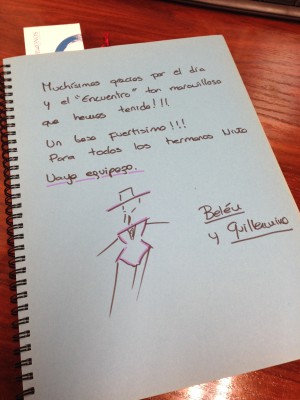 Muchísimas gracias por el día
y el "Encuentro" tan maravilloso
que hemos tenido!!!
Un beso fuertísimo!!!
Para todos los hermanos
Vaya equipazo.
Belén
y Guillermino